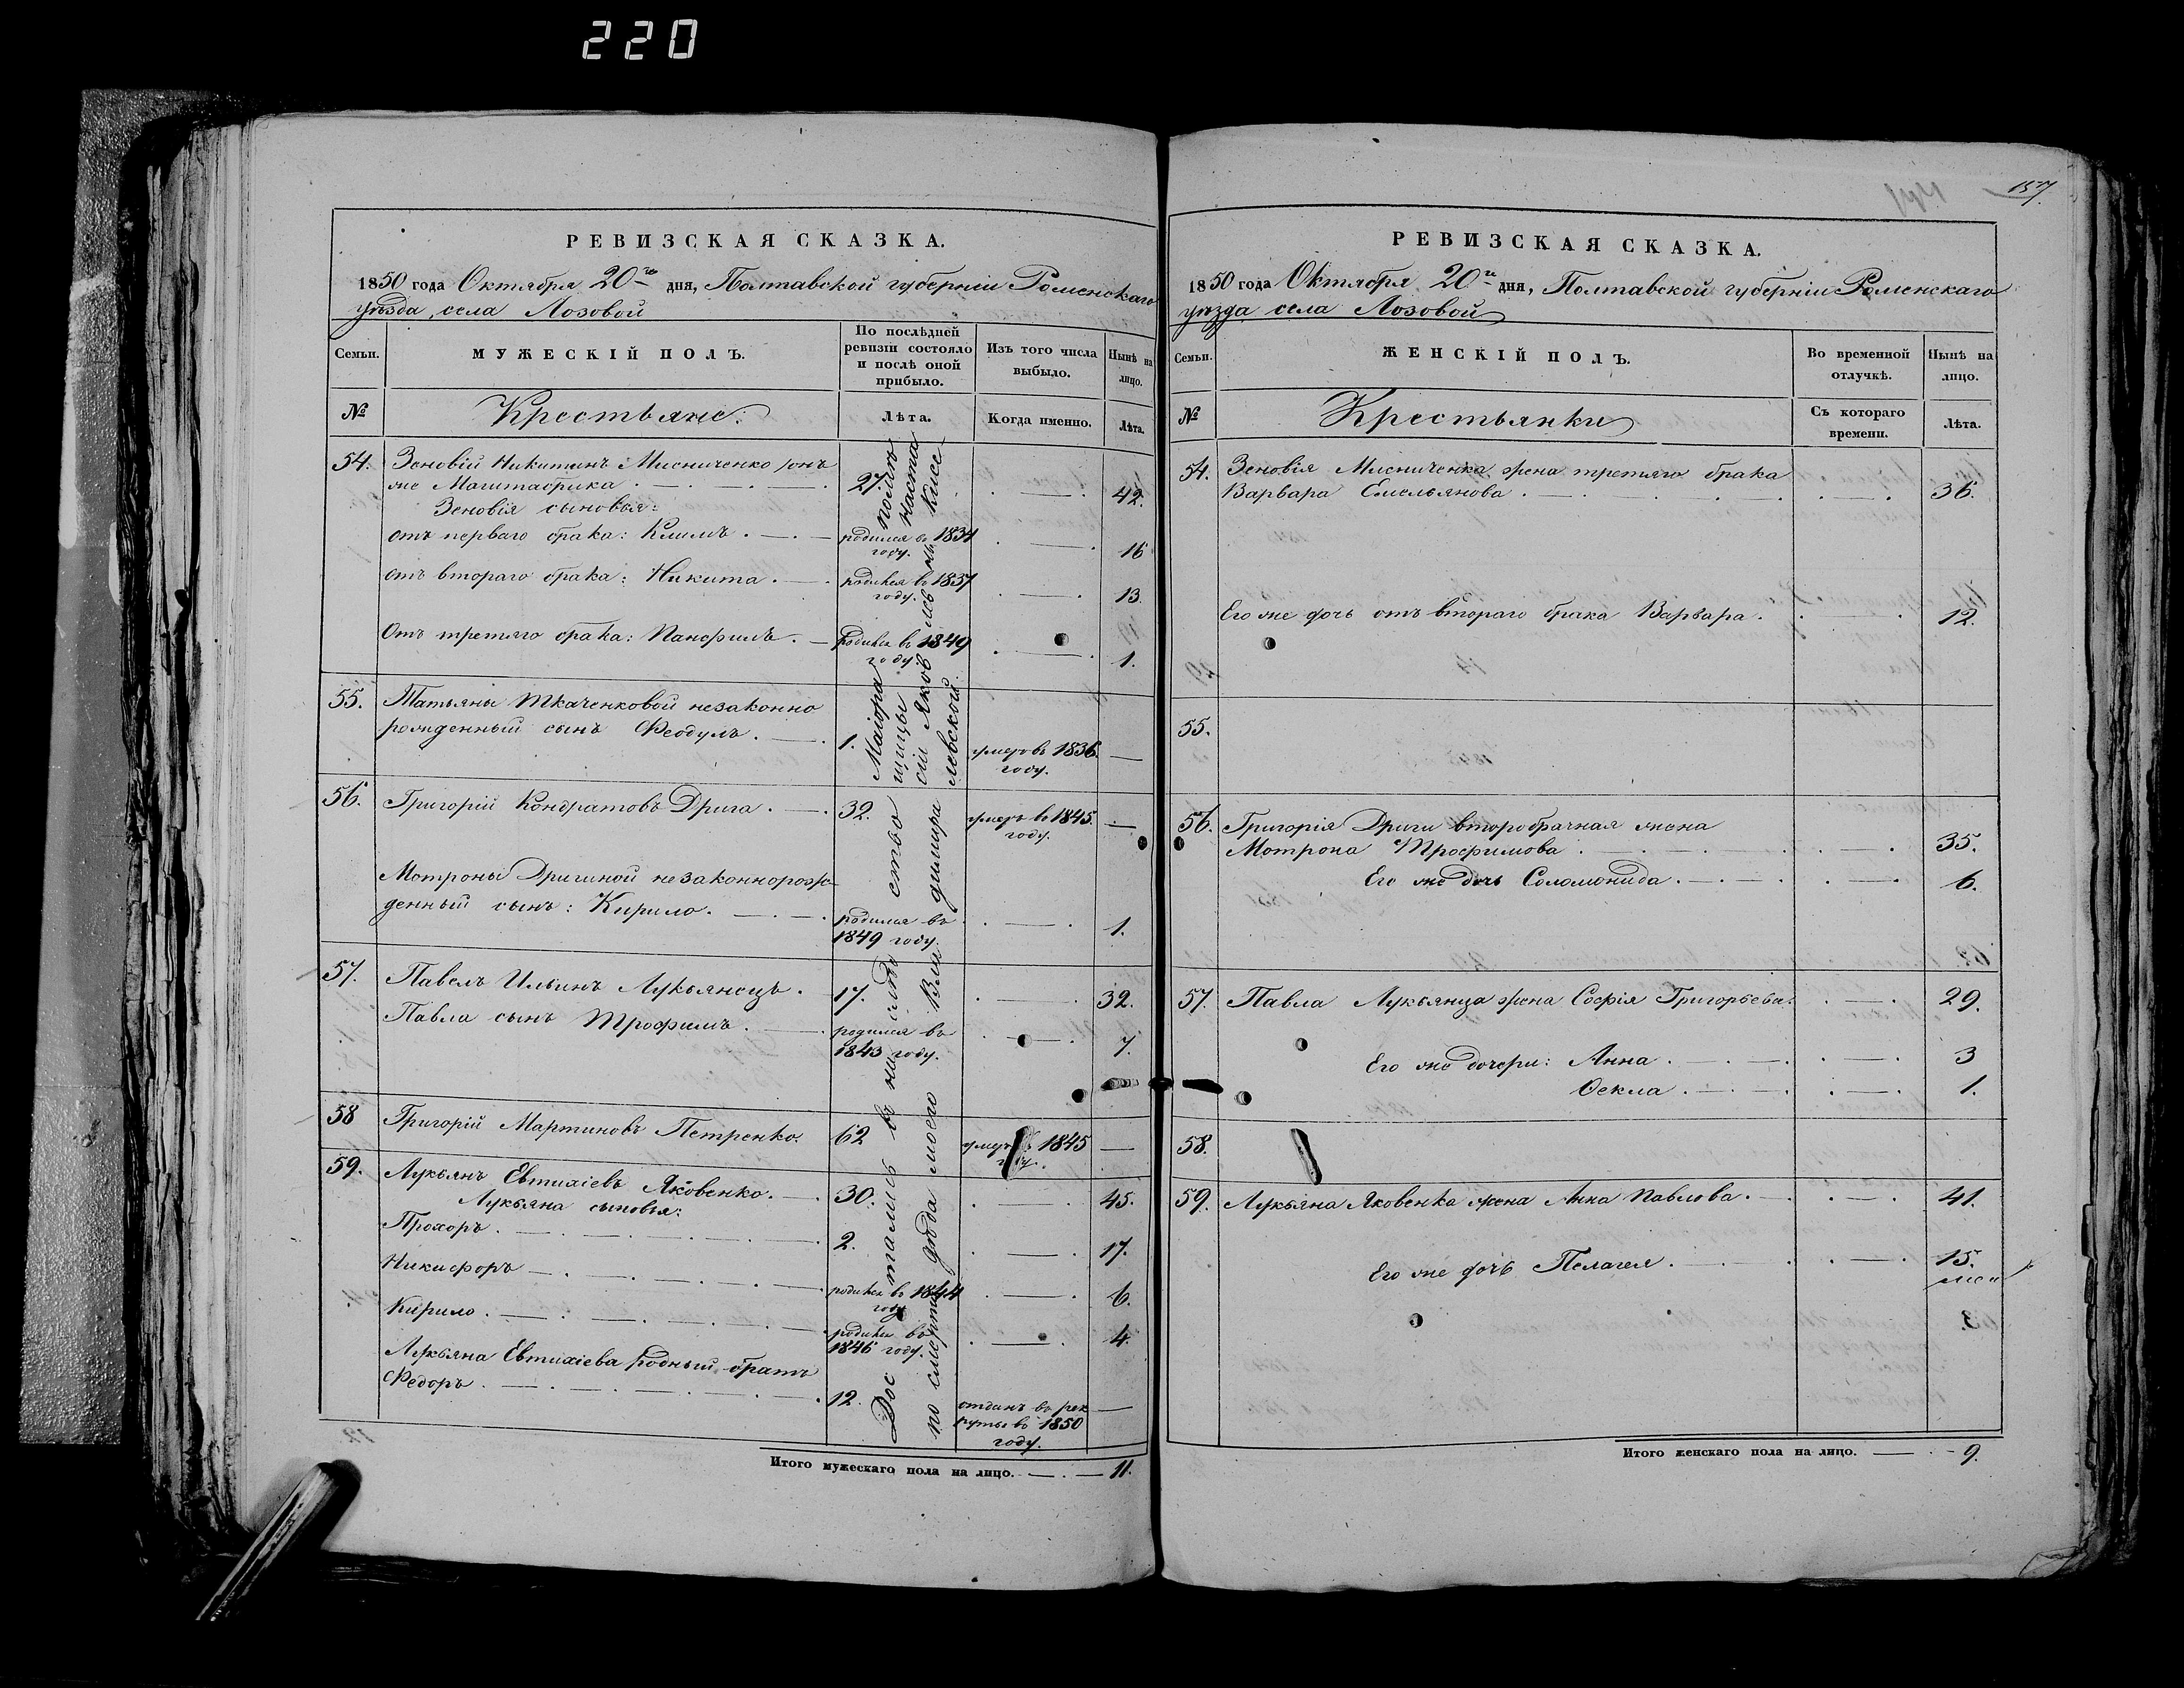 220
157
РЕВИЗСКАЯ СКАЗКА.
1850 года Октября 20го дня, Полтавской губерніи Роменскаго
уѣзда, села Лозовой
Семьи.
МУЖЕСКІЙ ПОЛЪ.
По послѣдней
ревизіи состояло
и послѣ оной
прибыло.
Изъ того числа
выбыло.
Нынѣ на
лицо.
№
Крестьяне:
Лѣта.
Когда именно.
Лѣта.
54. Зеновій Никитинъ Мисниченко онъ
же Магштабрика 27. 42.
Зеновія сыновья:
отъ перваго брака: Климъ родился въ 1834 16
году.
отъ втораго брака: Никита родился въ 1837
году. 13.
Отъ третяго брака: Панфилъ родился въ 1849
году. 1.
55. Татьяны Ткаченковой незаконно
рожденный сынъ Феодулъ 1. умеръ въ 1836. —
году.
56. Григорій Кондратовъ Дрига 32. умеръ въ 1845. —
году.
Мотроны Дригиной незаконнорож-
денный сынъ: Кирило. родился въ 1.
1849 году.
57. Павелъ Ильинъ Лукьянецъ. 17. 32.
Павла сынъ Трофимъ. родился въ
1843 году. 7.
58 Григорій Мартиновъ Петренко 62 умеръ 1845 —
59. Лукьянъ Евтихіевъ Яковенко. 30. 45.
Лукьяна сыновья:
Прохоръ. 2. 17.
Никифоръ родился въ 1844 6.
году
Кирило. родился въ 4.
1846 году.
Лукьяна Евтихіева родный братъ
Федоръ. 12. отданъ въ рек —
руты въ 1850
году.
Достались въ наслѣдство Маіора помѣ
по смерти дѣда моего Владимира
щицы Наста
сіи Яковлевнѣ Кисе
левской.
Итого мужескаго пола на лицо. — 11.
РЕВИЗСКАЯ СКАЗКА.
1850 года Октября 20го дня, Полтавской губерніи Роменскаго
уѣзда села Лозовой
Семьи.
ЖЕНСКІЙ ПОЛЪ.
Во временной
отлучкѣ.
Нынѣ на
лицо.
№
Крестьянки
Съ котораго
времени.
Лѣта.
54. Зеновія Мисниченка жена третяго брака
Варвара Емельянова 36.
Его же дочь отъ втораго брака Варвара. 12.
55.
56. Григорія Дриги второбрачная жена
Мотрона Трофимова 35.
Его же дочь Соломонида. 6.
57. Павла Лукьянца жена Софія Григорьева. 29.
Его же дочери: Анна 3
Фекла 1.
58.
59. Лукьяна Яковенка жена Анна Павлова. 41.
Его же дочь Пелагея 15.
Итого женскаго пола на лицо. — 9.